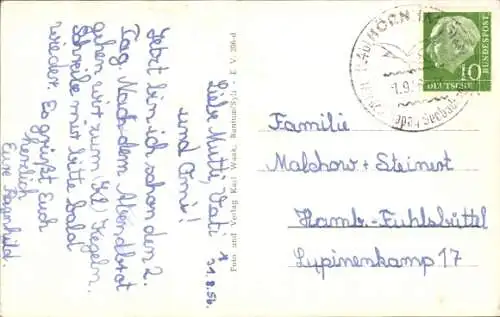 31.8.56.
Liebe Mutti, Vati
und Omi!
Jetzt bin ich schon den 2.
Tag. Nach dem Abendbrot
gehen wir zum Kegeln.
Schreibe mir bitte bald
wieder. Es grüßt Euch
herzlich
Eure
Foto und Verlag Karl Waak, Rantum/Sylt - E V 206-d
HÖRNUM
10
DEUTSCHE
BUNDESPOST
Familie
Malchow + Steinert
Hamb.-Fuhlsbüttel
Lupinenkamp 17